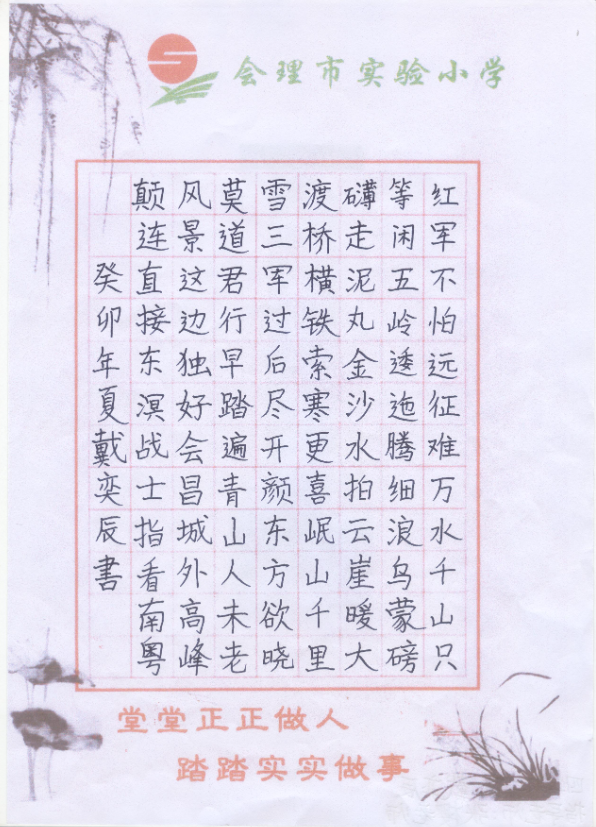 会理市实验小学
红军不怕远征难万水千山只
等闲五岭逶迤腾细浪乌蒙磅
礴走泥丸金沙水拍云崖暖大
渡桥横铁索寒更喜岷山千里
雪三军过后尽开颜东方欲晓
莫道君行早踏遍青山人未老
风景这边独好会昌城外高峰
颠连直接东溟战士指看南粤
癸卯年夏戴奕辰書
堂堂正正做人
踏踏实实做事